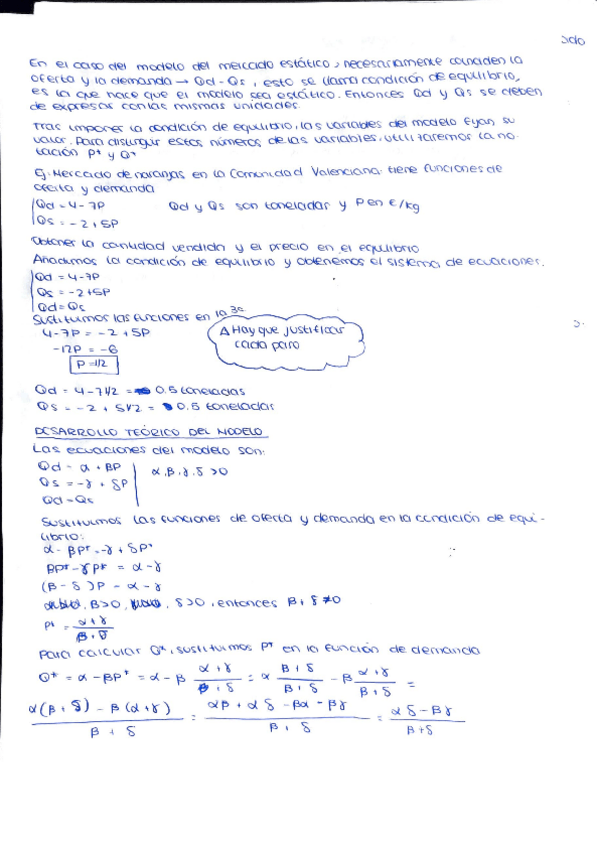 En el caso del modelo del mercado estático, necesariamente coinciden la
oferta y la demanda → Qd = Qs, esto se llama condición de equilibrio,
es la que hace que el modelo sea estático. Entonces Qd y Qs se deben
de expresar con las mismas unidades.
Tras imponer la condición de equilibrio, las variables del modelo fijan su
valor. Para distinguir estos números de las variables, utilizaremos la no-
tación P* y Q*
Ej. Mercado de naranjas en la Comunidad Valenciana tiene funciones de
oferta y demanda
Qd = 4-7P Qd y Qs son toneladas y P en €/kg
Qs = -2+5P
Obtener la cantidad vendida y el precio en el equilibrio
Añadimos la condición de equilibrio y obtenemos el sistema de ecuaciones.
Qd = 4-7P
Qs = -2+5P
Qd = Qs
Sustituimos las funciones en la 3ª
4-7P = -2+5P
-12P = -6
P = 1/2
⚠ Hay que justificar
cada paso
Qd = 4-7·1/2 = 0.5 toneladas
Qs = -2+5·1/2 = 0.5 toneladas
DESARROLLO TEÓRICO DEL MODELO
Las ecuaciones del modelo son:
Qd = α + βP
Qs = -γ + δP
Qd = Qs
α, β, γ, δ >0
Sustituimos las funciones de oferta y demanda en la condición de equi-
librio:
α - βP* = -γ + δP*
βP* - γP* = α - γ
(β - δ)P = α - γ
β>0, δ>0, entonces β+δ ≠0
P* = α+γ / β+δ
Para calcular Q*, sustituimos P* en la función de demanda
Q* = α - βP* = α - β α+γ / β+δ = α β+δ / β+δ - β α+γ / β+δ =
α(β+δ) - β(α+γ) / β+δ = αβ + αδ - βα - βγ / β+δ = αδ - βγ / β+δ